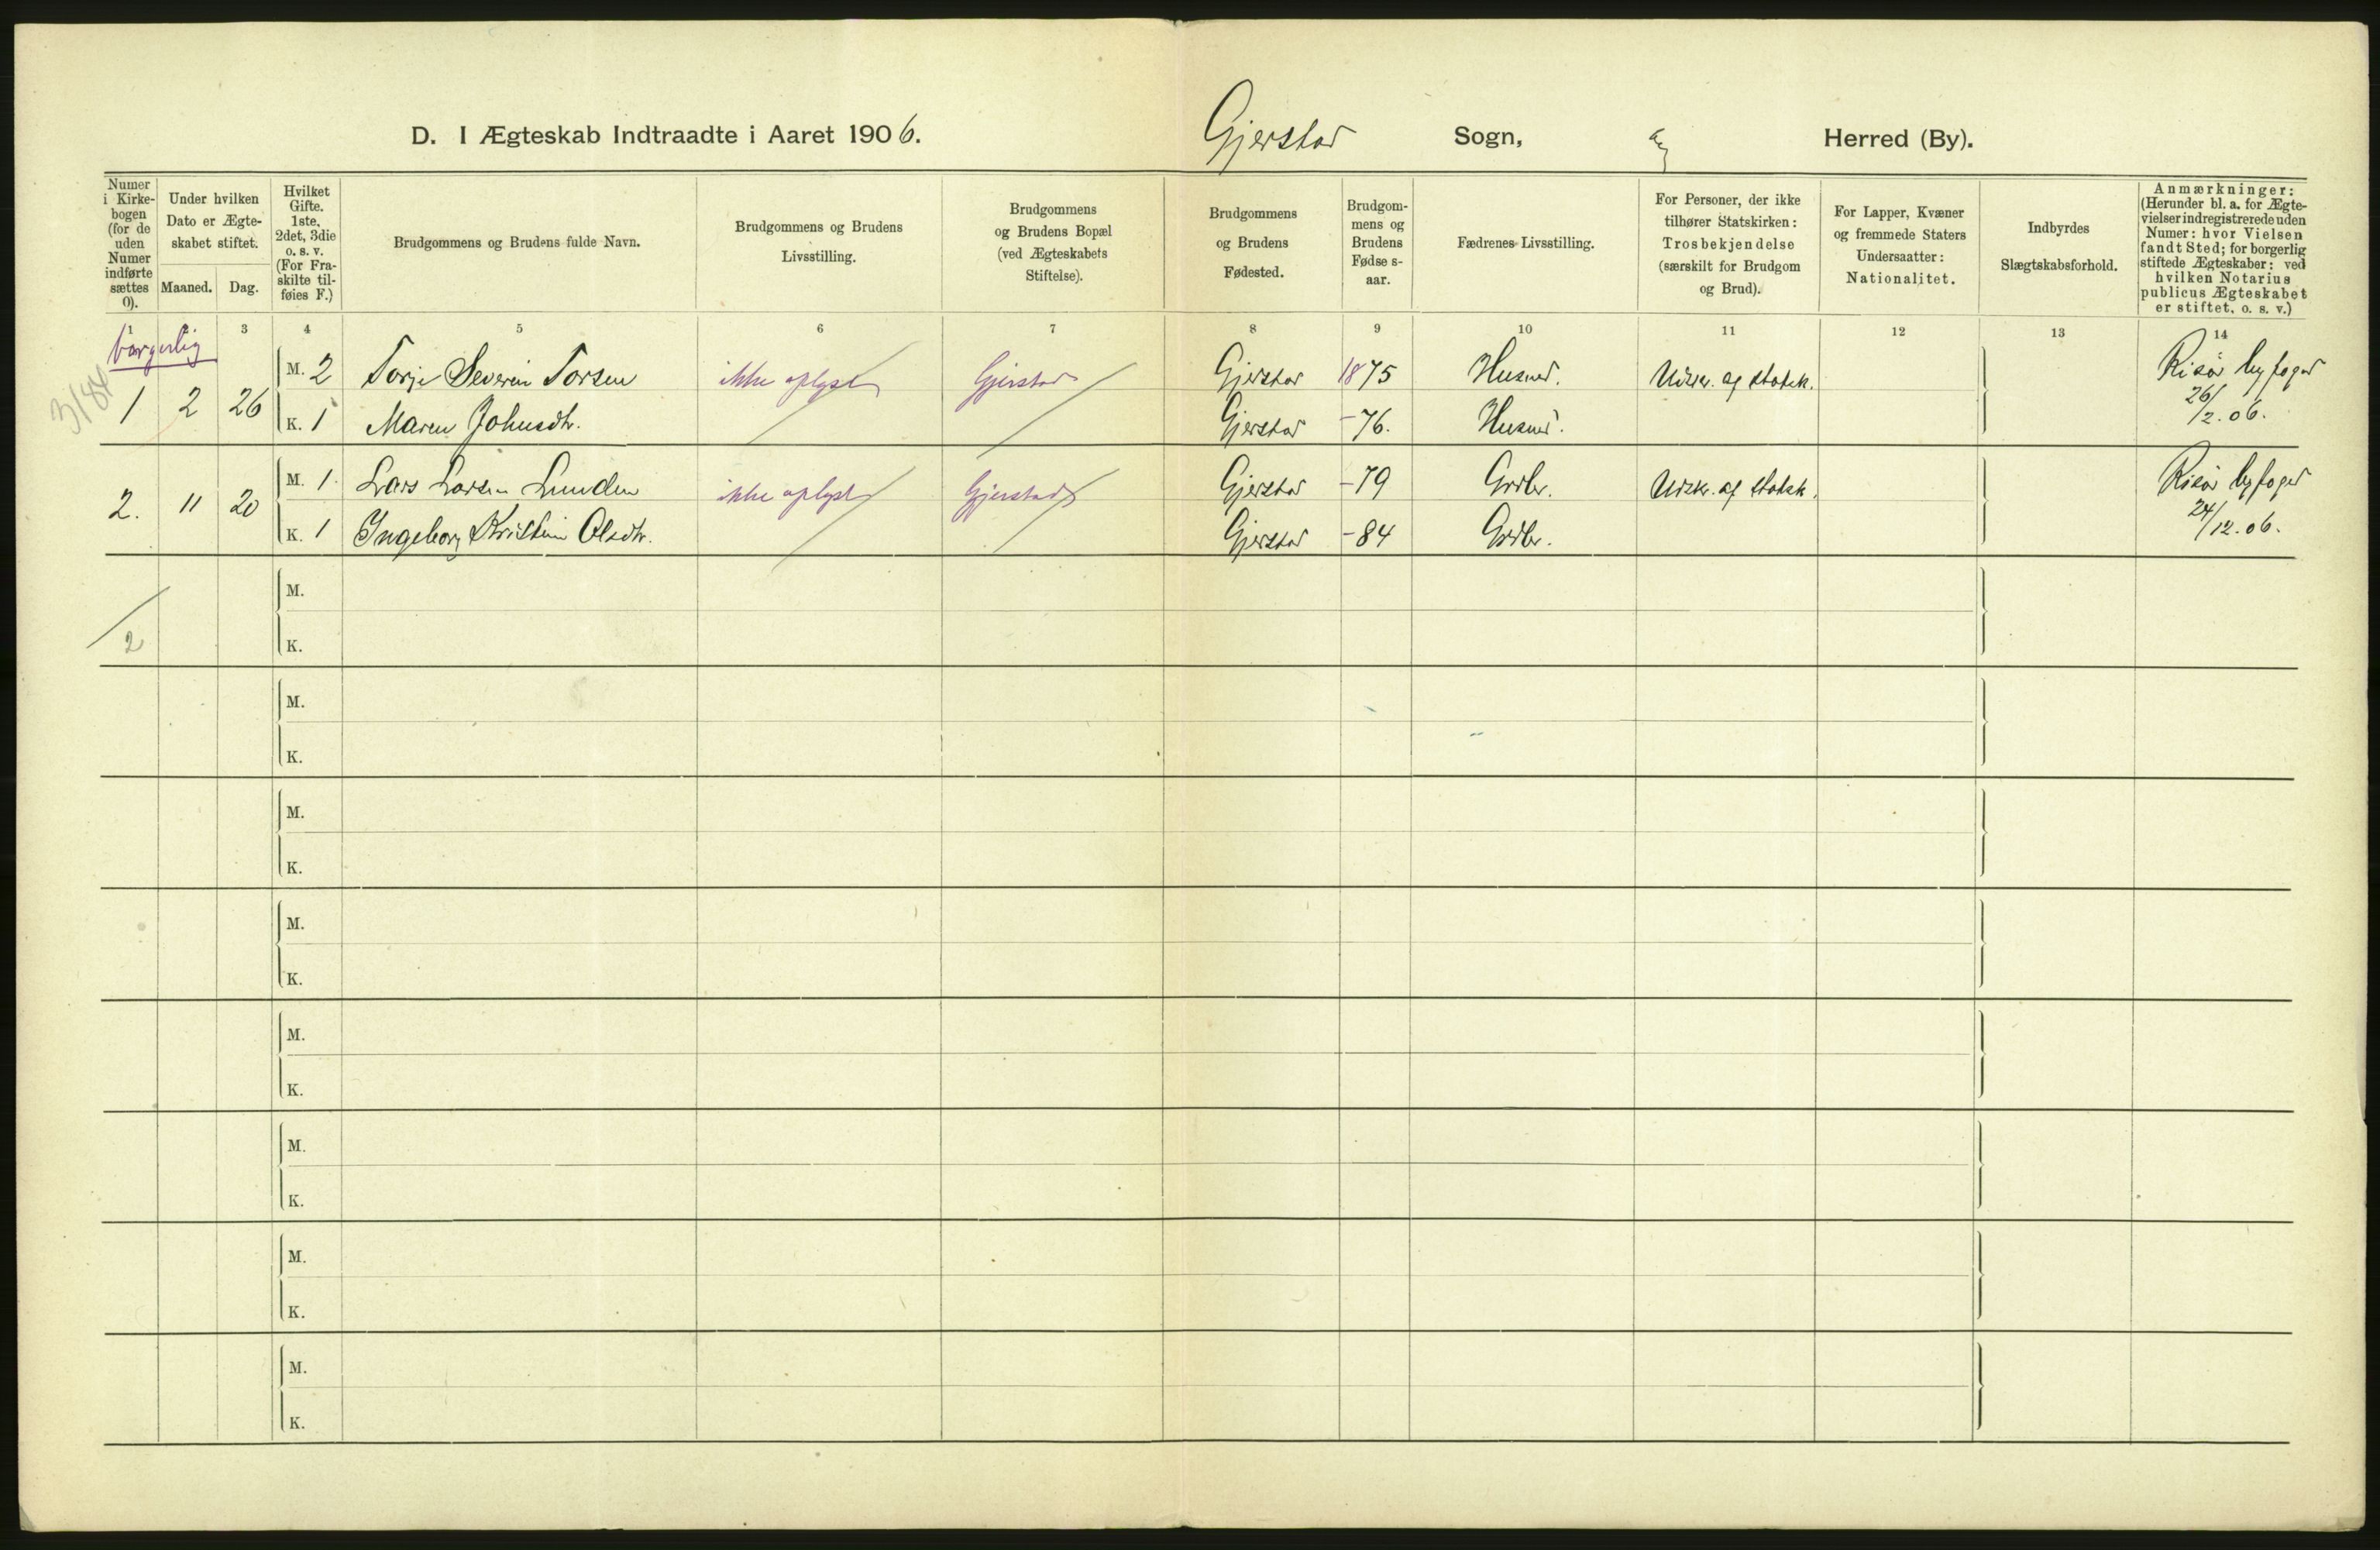 D. I Ægteskab Indtraadte i Aaret 1906.
Gjerstad Sogn, og Herred (By).
Numer i Kirkebogen (for de uden Numer indførte sættes 0).
Under hvilken Dato er Ægteskabet stiftet.
Maaned. Dag.
Hvilket Gifte. 1ste, 2det, 3die o. s. v. (For Fraskilte tilføies F.)
Brudgommens og Brudens fulde Navn.
Brudgommens og Brudens Livsstilling.
Brudgommens og Brudens Bopæl (ved Ægteskabets Stiftelse).
Brudgommens og Brudens Fødested.
Brudgommens og Brudens Fødselsaar.
Fædrenes Livsstilling.
For Personer, der ikke tilhører Statskirken: Trosbekjendelse (særskilt for Brudgom og Brud).
For Lapper, Kvæner og fremmede Staters Undersaatter: Nationalitet.
Indbyrdes Slægtskabsforhold.
Anmærkninger: (Herunder bl. a. for Ægtevielser indregistrerede uden Numer: hvor Vielsen fandt Sted; for borgerlig stiftede Ægteskaber: ved hvilken Notarius publicus Ægteskabet er stiftet. o. s. v.)
1 2 3 4 5 6 7 8 9 10 11 12 13 14
borgerlig
3/84
1 2 26 M. 2 Torje Severin Torsen ikke oplyst Gjerstad Gjerstad 1875 Husmd. Udskr. af statsk. Risør byfoged
K. 1 Maren Johnsdtr. Gjerstad -76. Husmd. 26/2.06.
2. 11 20 M. 1 Lars Larsen Lunden ikke oplyst Gjerstad Gjerstad -79 Grdbr. Udskr. af statsk. Risør byfoged
K. 1 Ingeborg Kristine Olsdtr. Gjerstad -84 Grdbr. 24/12.06.
M.
2
K.
M.
K.
M.
K.
M.
K.
M.
K.
M.
K.
M.
K.
M.
K.